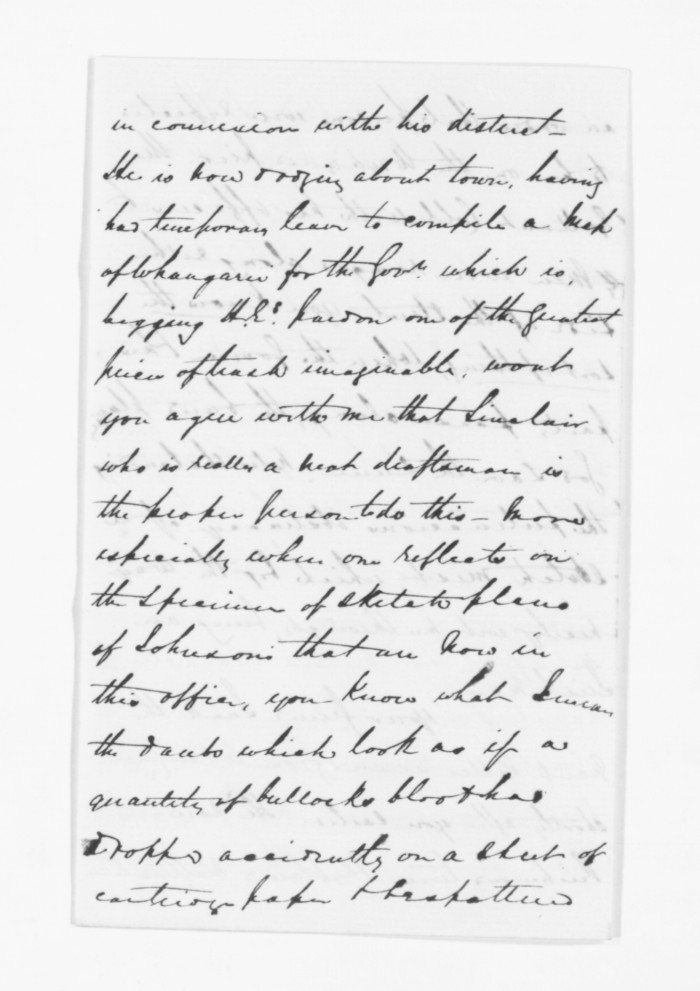 in connexion with his district –
He is now dodging about town, having
had temporary leave to compile a Map
of Whangarei for the Govr. which is,
begging H.E's. pardon one of the greatest
pieces of trash imaginable. wont
you agree with me that Sinclair
who is really a neat draftsman is
the proper person to do this – More
especially when one reflects on
the specimen of sketch plans
of Johnson's that are now in
this office, you know what I mean
the daubs which look as if a
quantity of bullocks blood had
dropped accidently on a sheet of
cartridge paper & bespattered